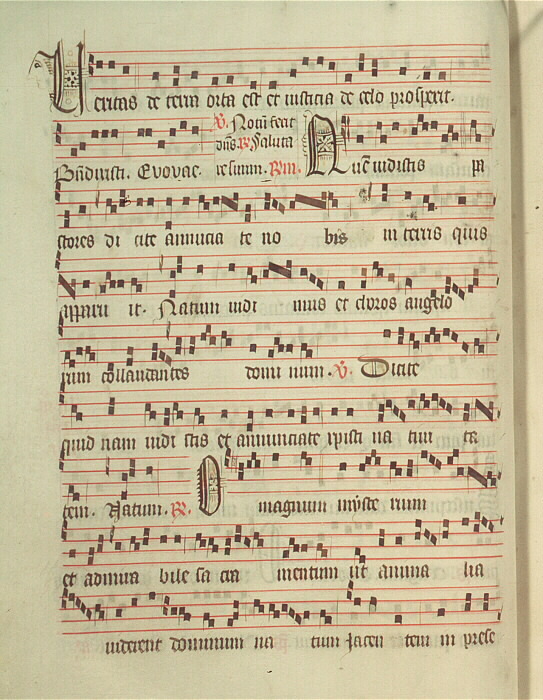 Veritas de terra orta est et iusticia de celo prosperit.
Bñdixisti. Evovae. V. Notū fecit dñs. R. Saluta resuum. Rm. Quē vidistis pa
stores di cite annucia te no bis in terris quis
apparu it. Natum vidi mus et choros angelo
rum collaudantes domi num. V. Dicite
quid nam vidi stis et annunciate xpisti na tivi ta
tem. Natum. R. O magnum myste rium
et admira bile sa cra mentum ut anima lia
viderent dominum na tum iacen tem in prese